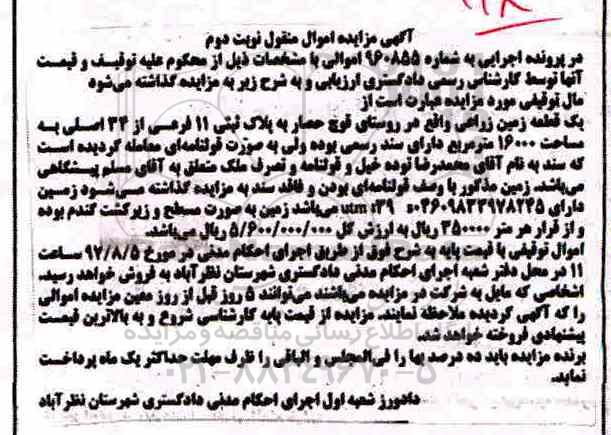 آگهی مزایده اموال منقول نوبت دوم
در پرونده اجرایی به شماره ۹۶۰۸۵۵ اموالی با مشخصات ذیل از محکوم علیه توقیف و قیمت
آنها توسط کارشناس رسمی دادگستری ارزیابی و به شرح زیر به مزایده گذاشته می‌شود
مال توقیفی مورد مزایده عبارت است از
یک قطعه زمین زراعی واقع در روستای قوچ حصار به پلاک ثبتی ۱۱ فرعی از ۳۴ اصلی به
مساحت ۱۶۰۰۰ مترمربع دارای سند رسمی بوده ولی به صورت قولنامه‌ای معامله گردیده است
که سند به نام آقای محمدرضا توده خیل و قولنامه و تصرف ملک متعلق به آقای مسلم پیشگاهی
می‌باشد. زمین مذکور با وصف قولنامه‌ای بودن و فاقد سند به مزایده گذاشته می‌شود زمین
دارای utm :۳۹ s: می‌باشد زمین به صورت مسطح و زیرکشت گندم بوده
و از قرار هر متر ۳۵۰۰۰۰ ریال به ارزش کل ۵/۶۰۰/۰۰۰/۰۰۰ ریال می‌باشد.
اموال توقیفی با قیمت پایه به شرح فوق از طریق اجرای احکام مدنی در مورخ ۹۷/۸/۵ ساعت
۱۱ در محل دفتر شعبه اجرای احکام مدنی دادگستری شهرستان نظرآباد به فروش خواهد رسید.
اشخاصی که مایل به شرکت در مزایده می‌باشند می‌توانند ۵ روز قبل از روز معین مزایده اموالی
را که آگهی گردیده ملاحظه نمایند. مزایده از قیمت پایه کارشناسی شروع و به بالاترین قیمت
پیشنهادی فروخته خواهد شد.
برنده مزایده باید ده درصد بها را فی‌المجلس و الباقی را ظرف مهلت حداکثر یک ماه پرداخت
نماید.
دادورز شعبه اول اجرای احکام مدنی دادگستری شهرستان نظرآباد